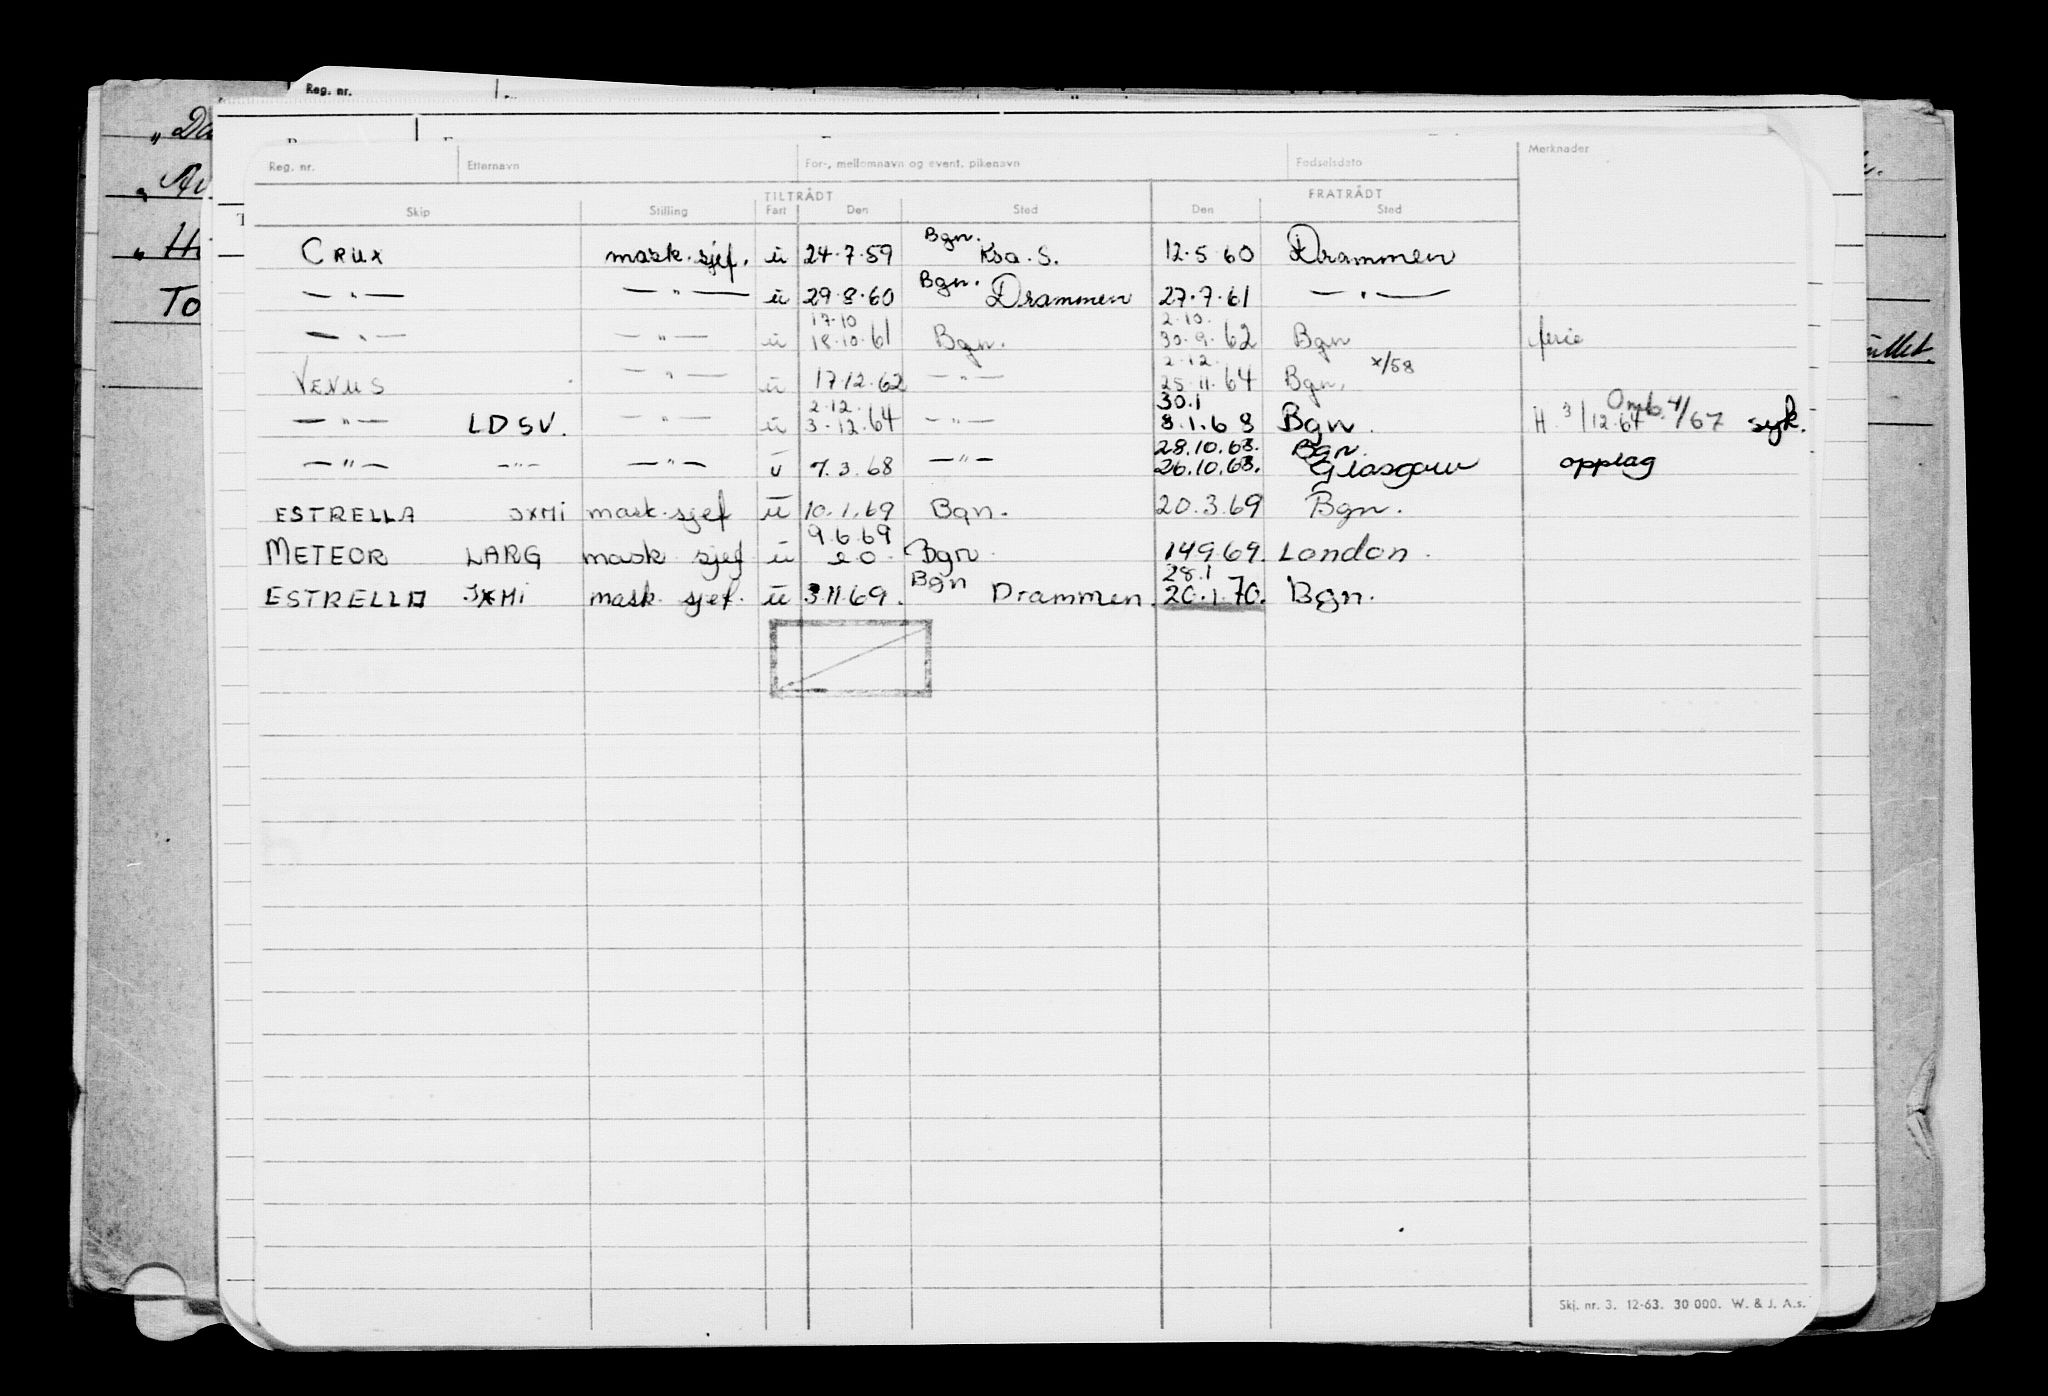 Reg. nr.
„ Da
Reg. nr. Etternavn For-, mellomnavn og event. pikenavn Fødselsdato Merknader
TILTRÅDT FRATRÅDT
Skip Stilling Fart Den Sted Den Sted
Bgn.
CRUX mask. sjef. u 24.7.59 Ksa. S. 12.5.60 Drammen
Bgn.
— " — — " — u 29.8.60 Drammen 27.7.61 — " —
17.10 2.10.
— " — — " — u 18.10.61 Bgn. 30.9.62 Bgn ferie
2.12. x/58
VENUS — " — u 17.12.62 — " — 25.11.64 Bgn.
2.12. 30.1 Omb. 4/67
— " — LDSV. — " — u 3.12.64 — " — 8.1.68 Bgn. H 3/12.64 syk.
28.10.68. Bgn.
— " — — " — — " — u 7.3.68 — " — 26.10.68. Glasgow opplag
ESTRELLA JXMI mask. sjef u 10.1.69 Bgn. 20.3.69 Bgn.
9.6.69
METEOR LARG mask sjef u Bgn. 14.9.69. London.
Bgn 28.1
ESTRELLA JXMI mask. sjef. u 3.11.69. Drammen. 20.1.70. Bgn.
Skj. nr. 3. 12-63. 30 000. W. & J. A.s.